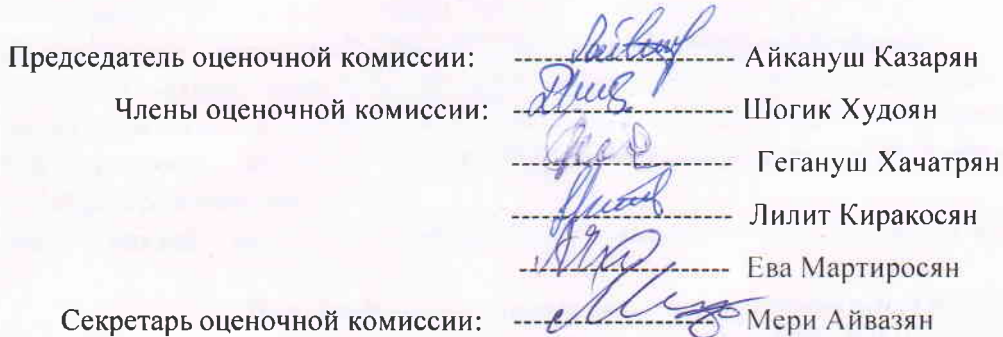 Председатель оценочной комиссии: Айкануш Казарян
Члены оценочной комиссии: Шогик Худоян
Гегануш Хачатрян
Лилит Киракосян
Ева Мартиросян
Секретарь оценочной комиссии: Мери Айвазян